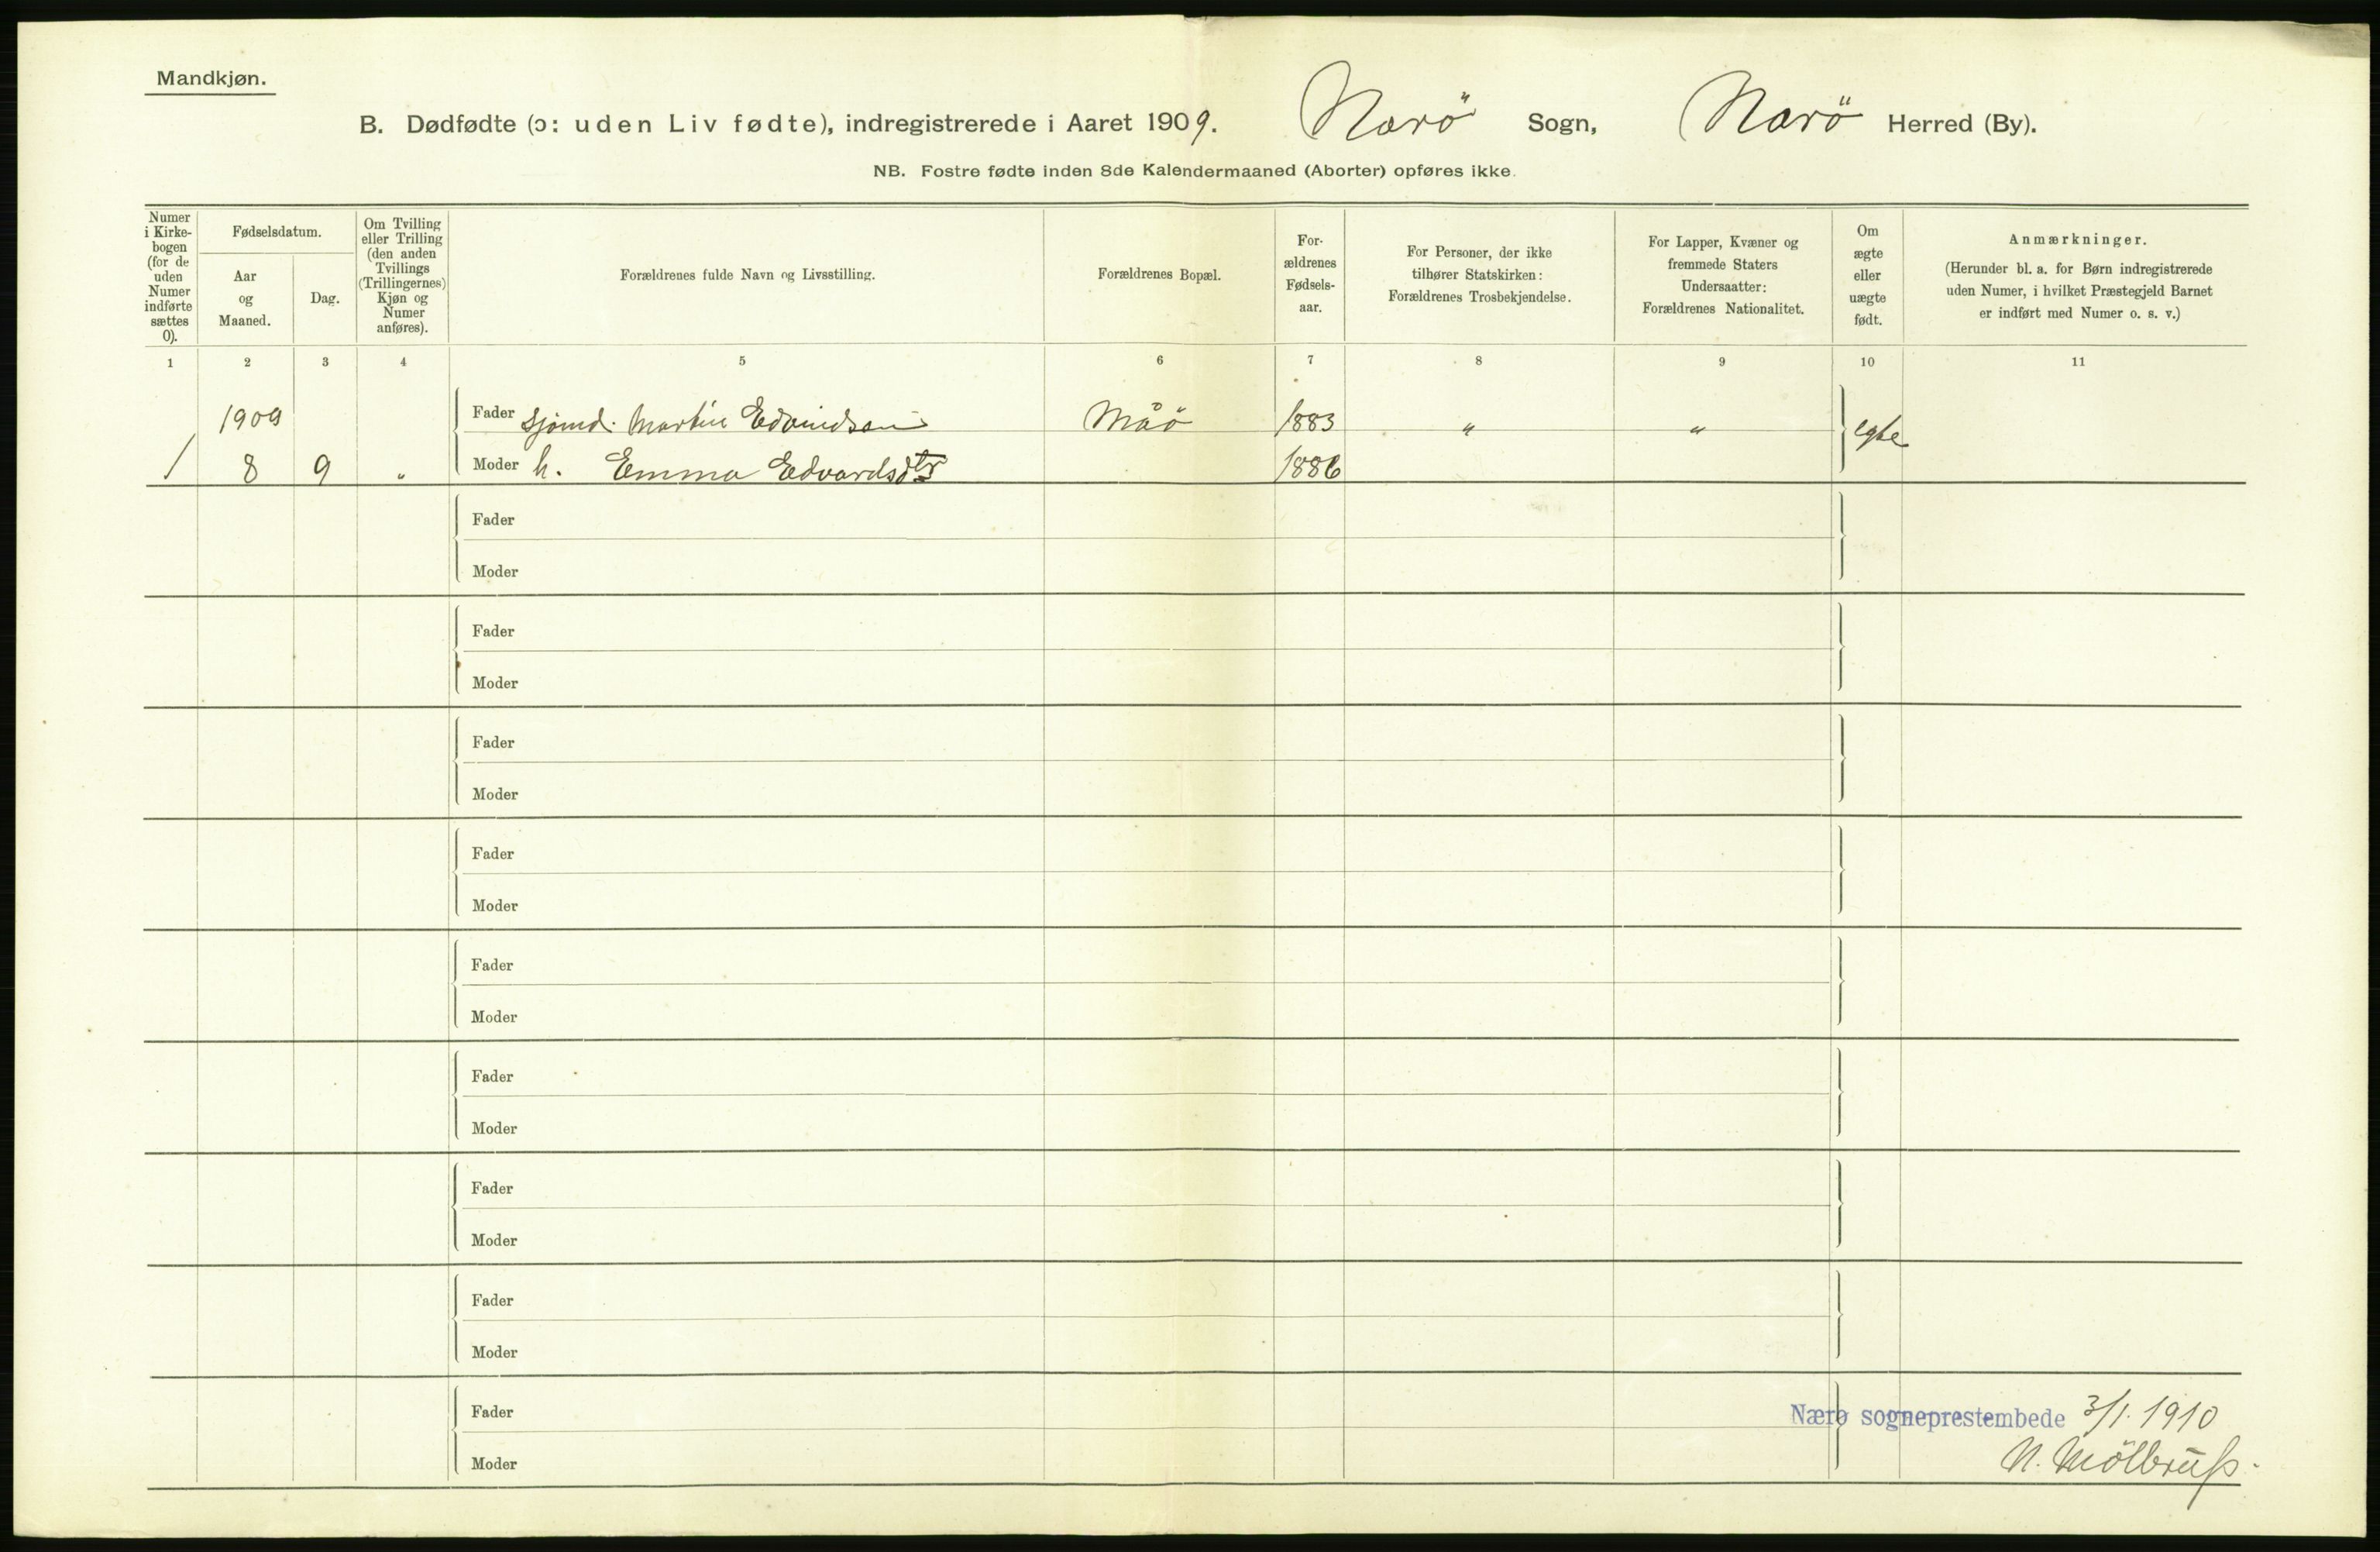 Mandkjøn.
B. Dødfødte (ɔ: uden Liv fødte), indregistrerede i Aaret 1909. Narö Sogn, Narö Herred (By).
NB. Fostre fødte inden 8de Kalendermaaned (Aborter) opføres ikke.
Numer i Kirke-bogen (for de uden Numer indførte sættes 0).
Fødselsdatum.
Aar og Maaned.
Dag.
Om Tvilling eller Trilling (den anden Tvillings (Trillingernes) Kjøn og Numer anføres).
Forældrenes fulde Navn og Livsstilling.
Forældrenes Bopæl.
For-ældrenes Fødsels-aar.
For Personer, der ikke tilhører Statskirken: Forældrenes Trosbekjendelse.
For Lapper, Kvæner og fremmede Staters Undersaatter: Forældrenes Nationalitet.
Om ægte eller uægte født.
Anmærkninger.
(Herunder bl. a. for Børn indregistrerede uden Numer, i hvilket Præstegjeld Barnet er indført med Numer o. s. v.)
1 2 3 4 5 6 7 8 9 10 11
1909 Fader sjömd. Martin Edvindsen Måö 1883 " " egte
1 8 9 " Moder h. Emma Edvardsdtr 1886
Fader
Moder
Fader
Moder
Fader
Moder
Fader
Moder
Fader
Moder
Fader
Moder
Fader
Moder
Fader
Moder
Fader
Nærø sogneprestembede 3/1. 1910
Moder